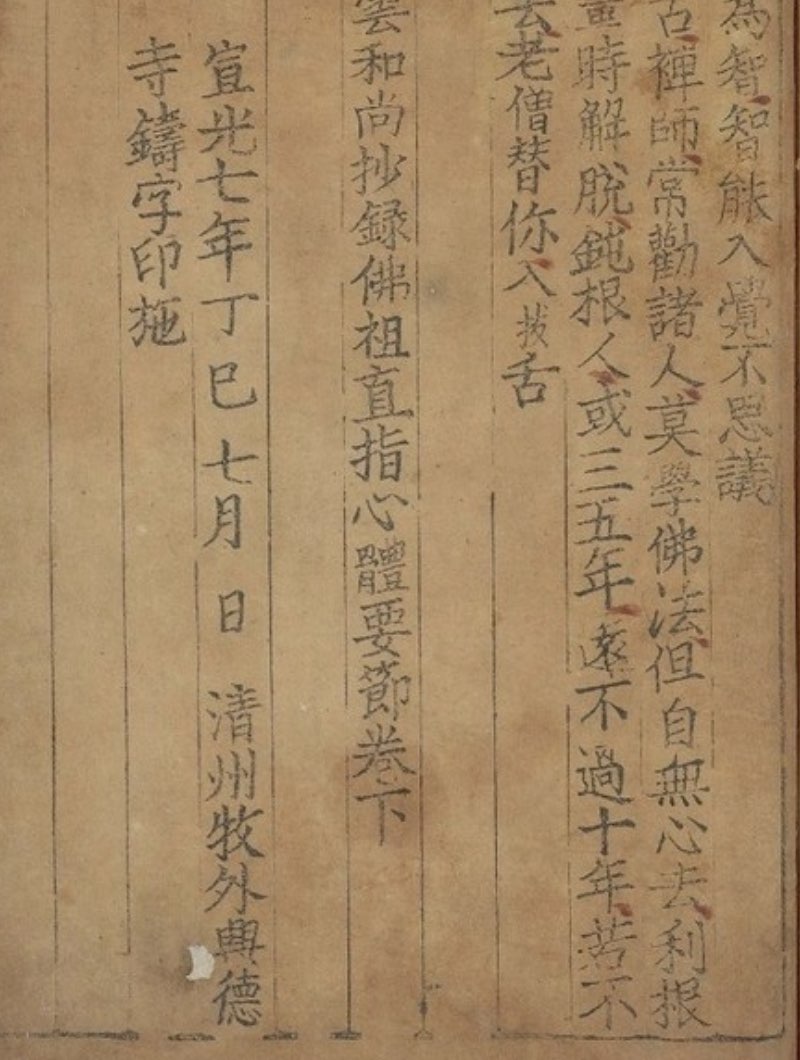 為智智能入覺不思議
古禪師常勸諸人莫學佛法但自無心去利根
時解脫鈍根人或三五年遠不過十年若不
去老僧替你入拔舌
雲和尚抄錄佛祖直指心體要節卷下
宣光七年丁巳七月 日 清州牧外興德
寺鑄字印施